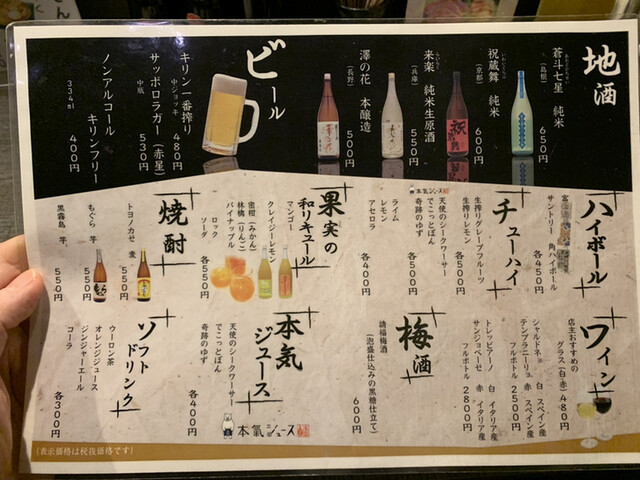 地酒
蒼斗七星 純米
(島根)
650円
祝蔵舞 純米
(京都)
600円
来楽 純米生原酒
(兵庫)
550円
澤の花 本醸造
(長野)
500円
ビール
キリン一番搾り
中ジョッキ
480円
サッポロラガー(赤星)
中瓶
530円
ノンアルコール
キリンフリー
334ml
400円
ハイボール
サントリー 角ハイボール
各450円
チューハイ
生搾りグレープフルーツ
生搾りレモン
各500円
本氣ジュース
天使のシークワーサー
でこっとぽん
奇跡のゆず
各500円
ライム
レモン
アセロラ
各400円
果実の
和リキュール
マンゴー
クレイジーレモン
蜜柑(みかん)
林檎(りんご)
パイナップル
ロック
ソーダ
各550円
焼酎
トヨノカゼ 麦
550円
もぐら 芋
550円
黒霧島 芋
550円
ワイン
店主おすすめの
グラス(白・赤)
480円
シャルドネ 白 スペイン産
テンプラニーリョ 赤 スペイン産
フルボトル 2500円
トレッビアーノ 白 イタリア産
サンジョベーゼ 赤 イタリア産
フルボトル 2800円
梅酒
請福梅酒
(泡盛仕込みの黒糖仕立て)
600円
本気
ジュース
天使のシークワーサー
でこっとぽん
奇跡のゆず
各400円
本氣ジュース
ソフト
ドリンク
ウーロン茶
オレンジジュース
ジンジャーエール
コーラ
各300円
(表示価格は税抜価格です)